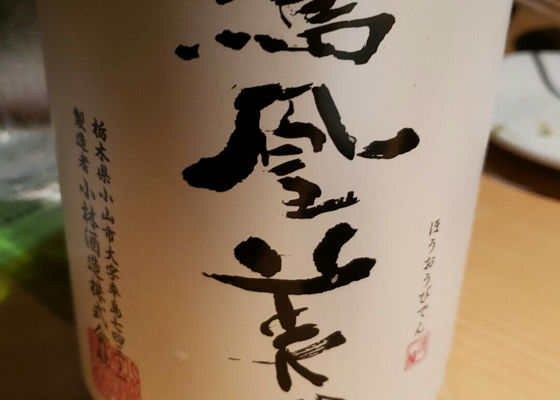 ほうおうびでん
鳳凰美
栃木県小山市大字卒島七四三
製造者 小林酒造株式会社